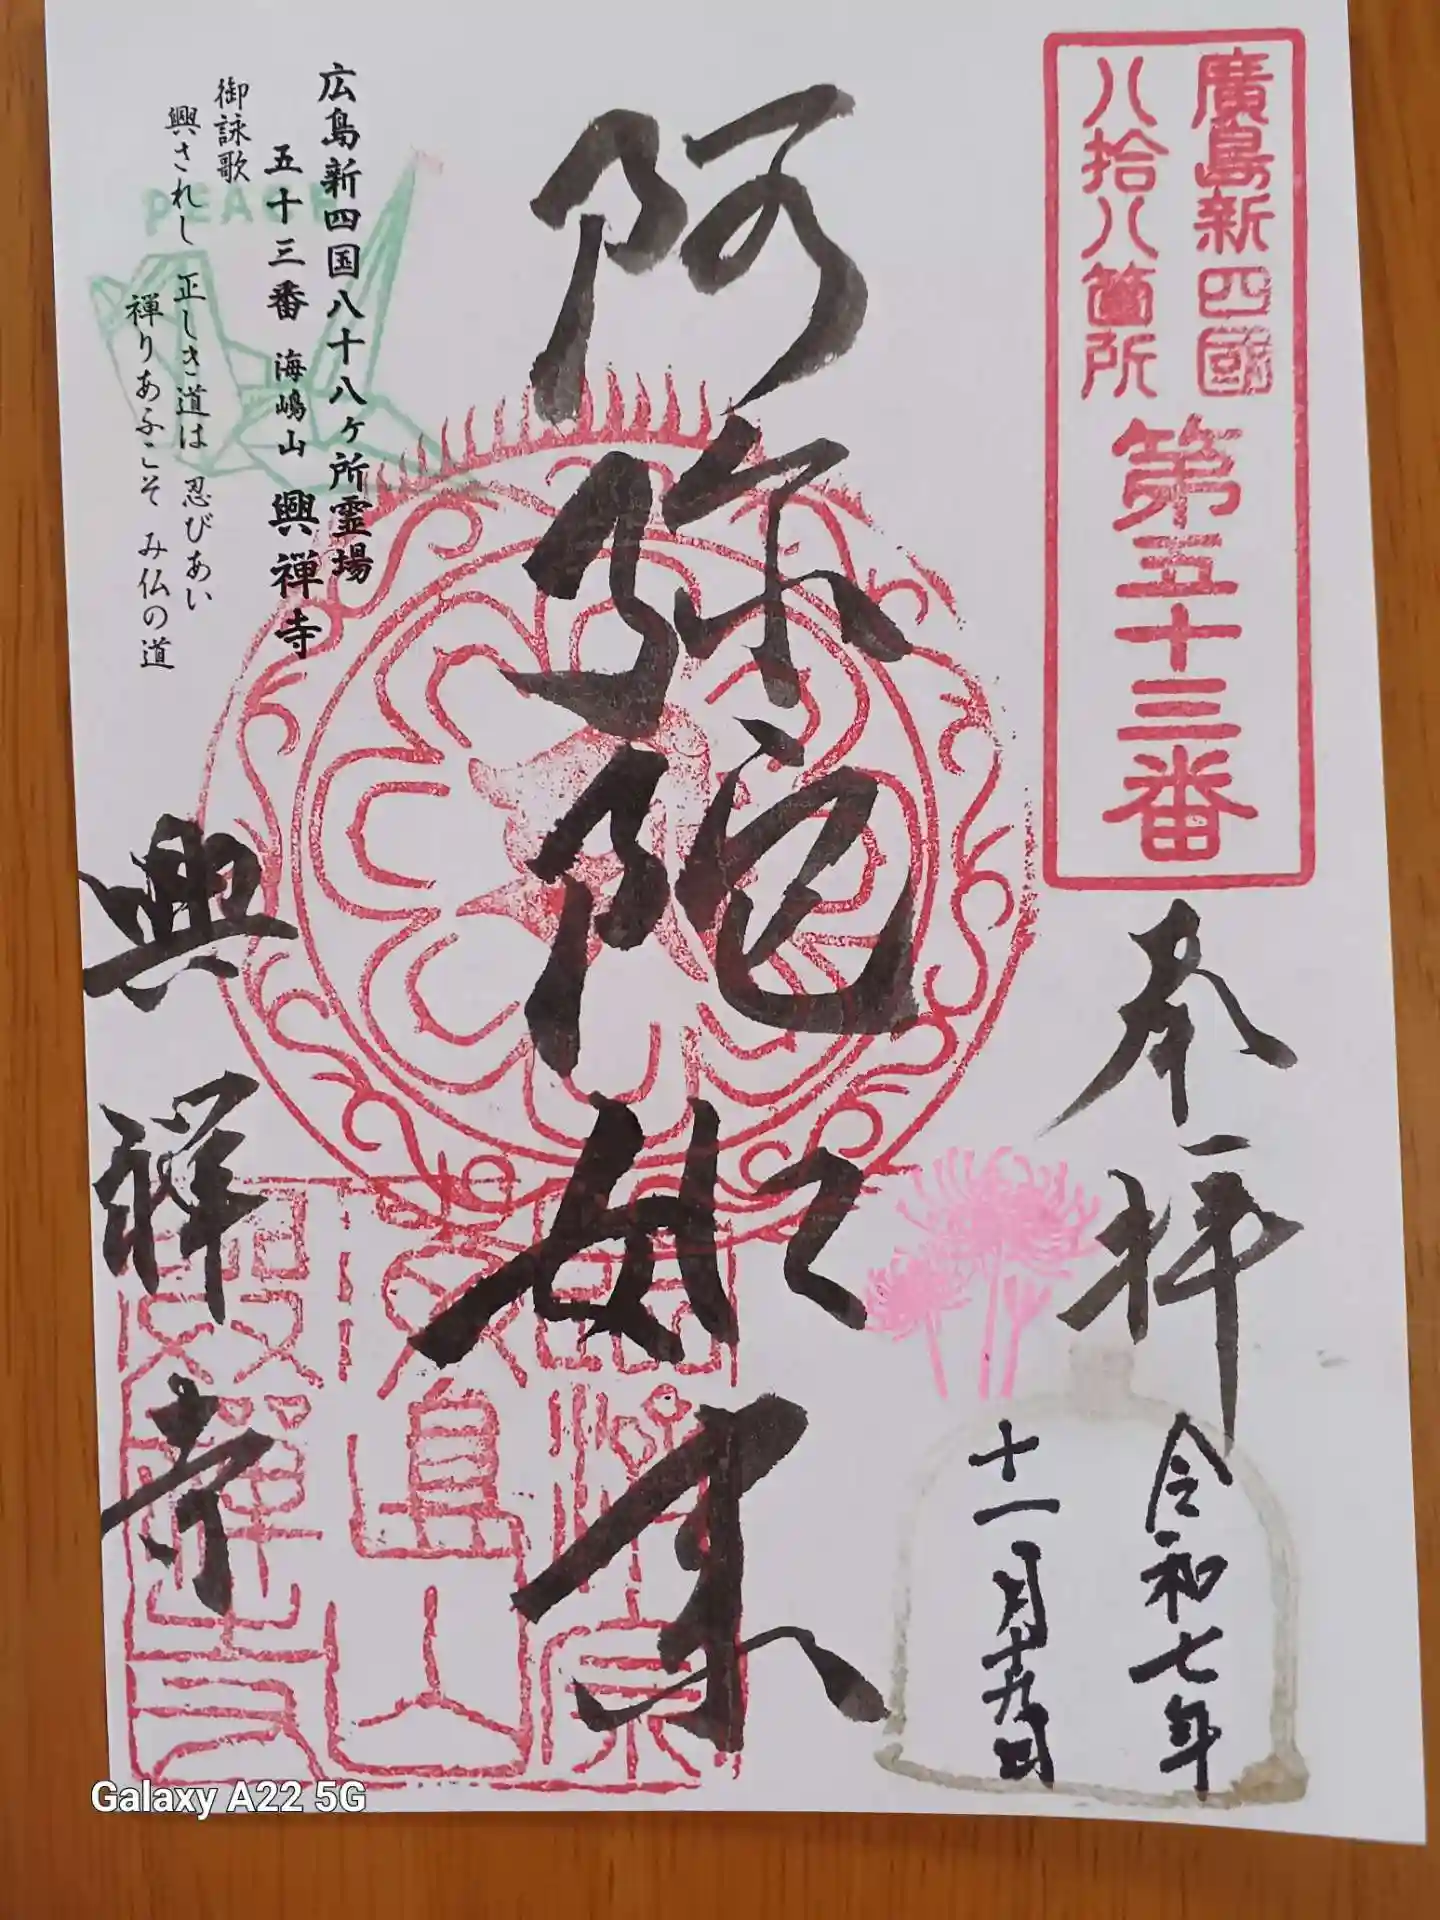 廣島新四國
八拾八箇所
第五十三番
奉拝
令和七年
十一月十九日
阿弥陀如来
広島新四国八十八ヶ所霊場
五十三番 海嶋山 興禅寺
御詠歌
興されし 正しき道は 忍びあい
禅りあふこそ み仏の道
PEACE
興禅寺
Galaxy A22 5G